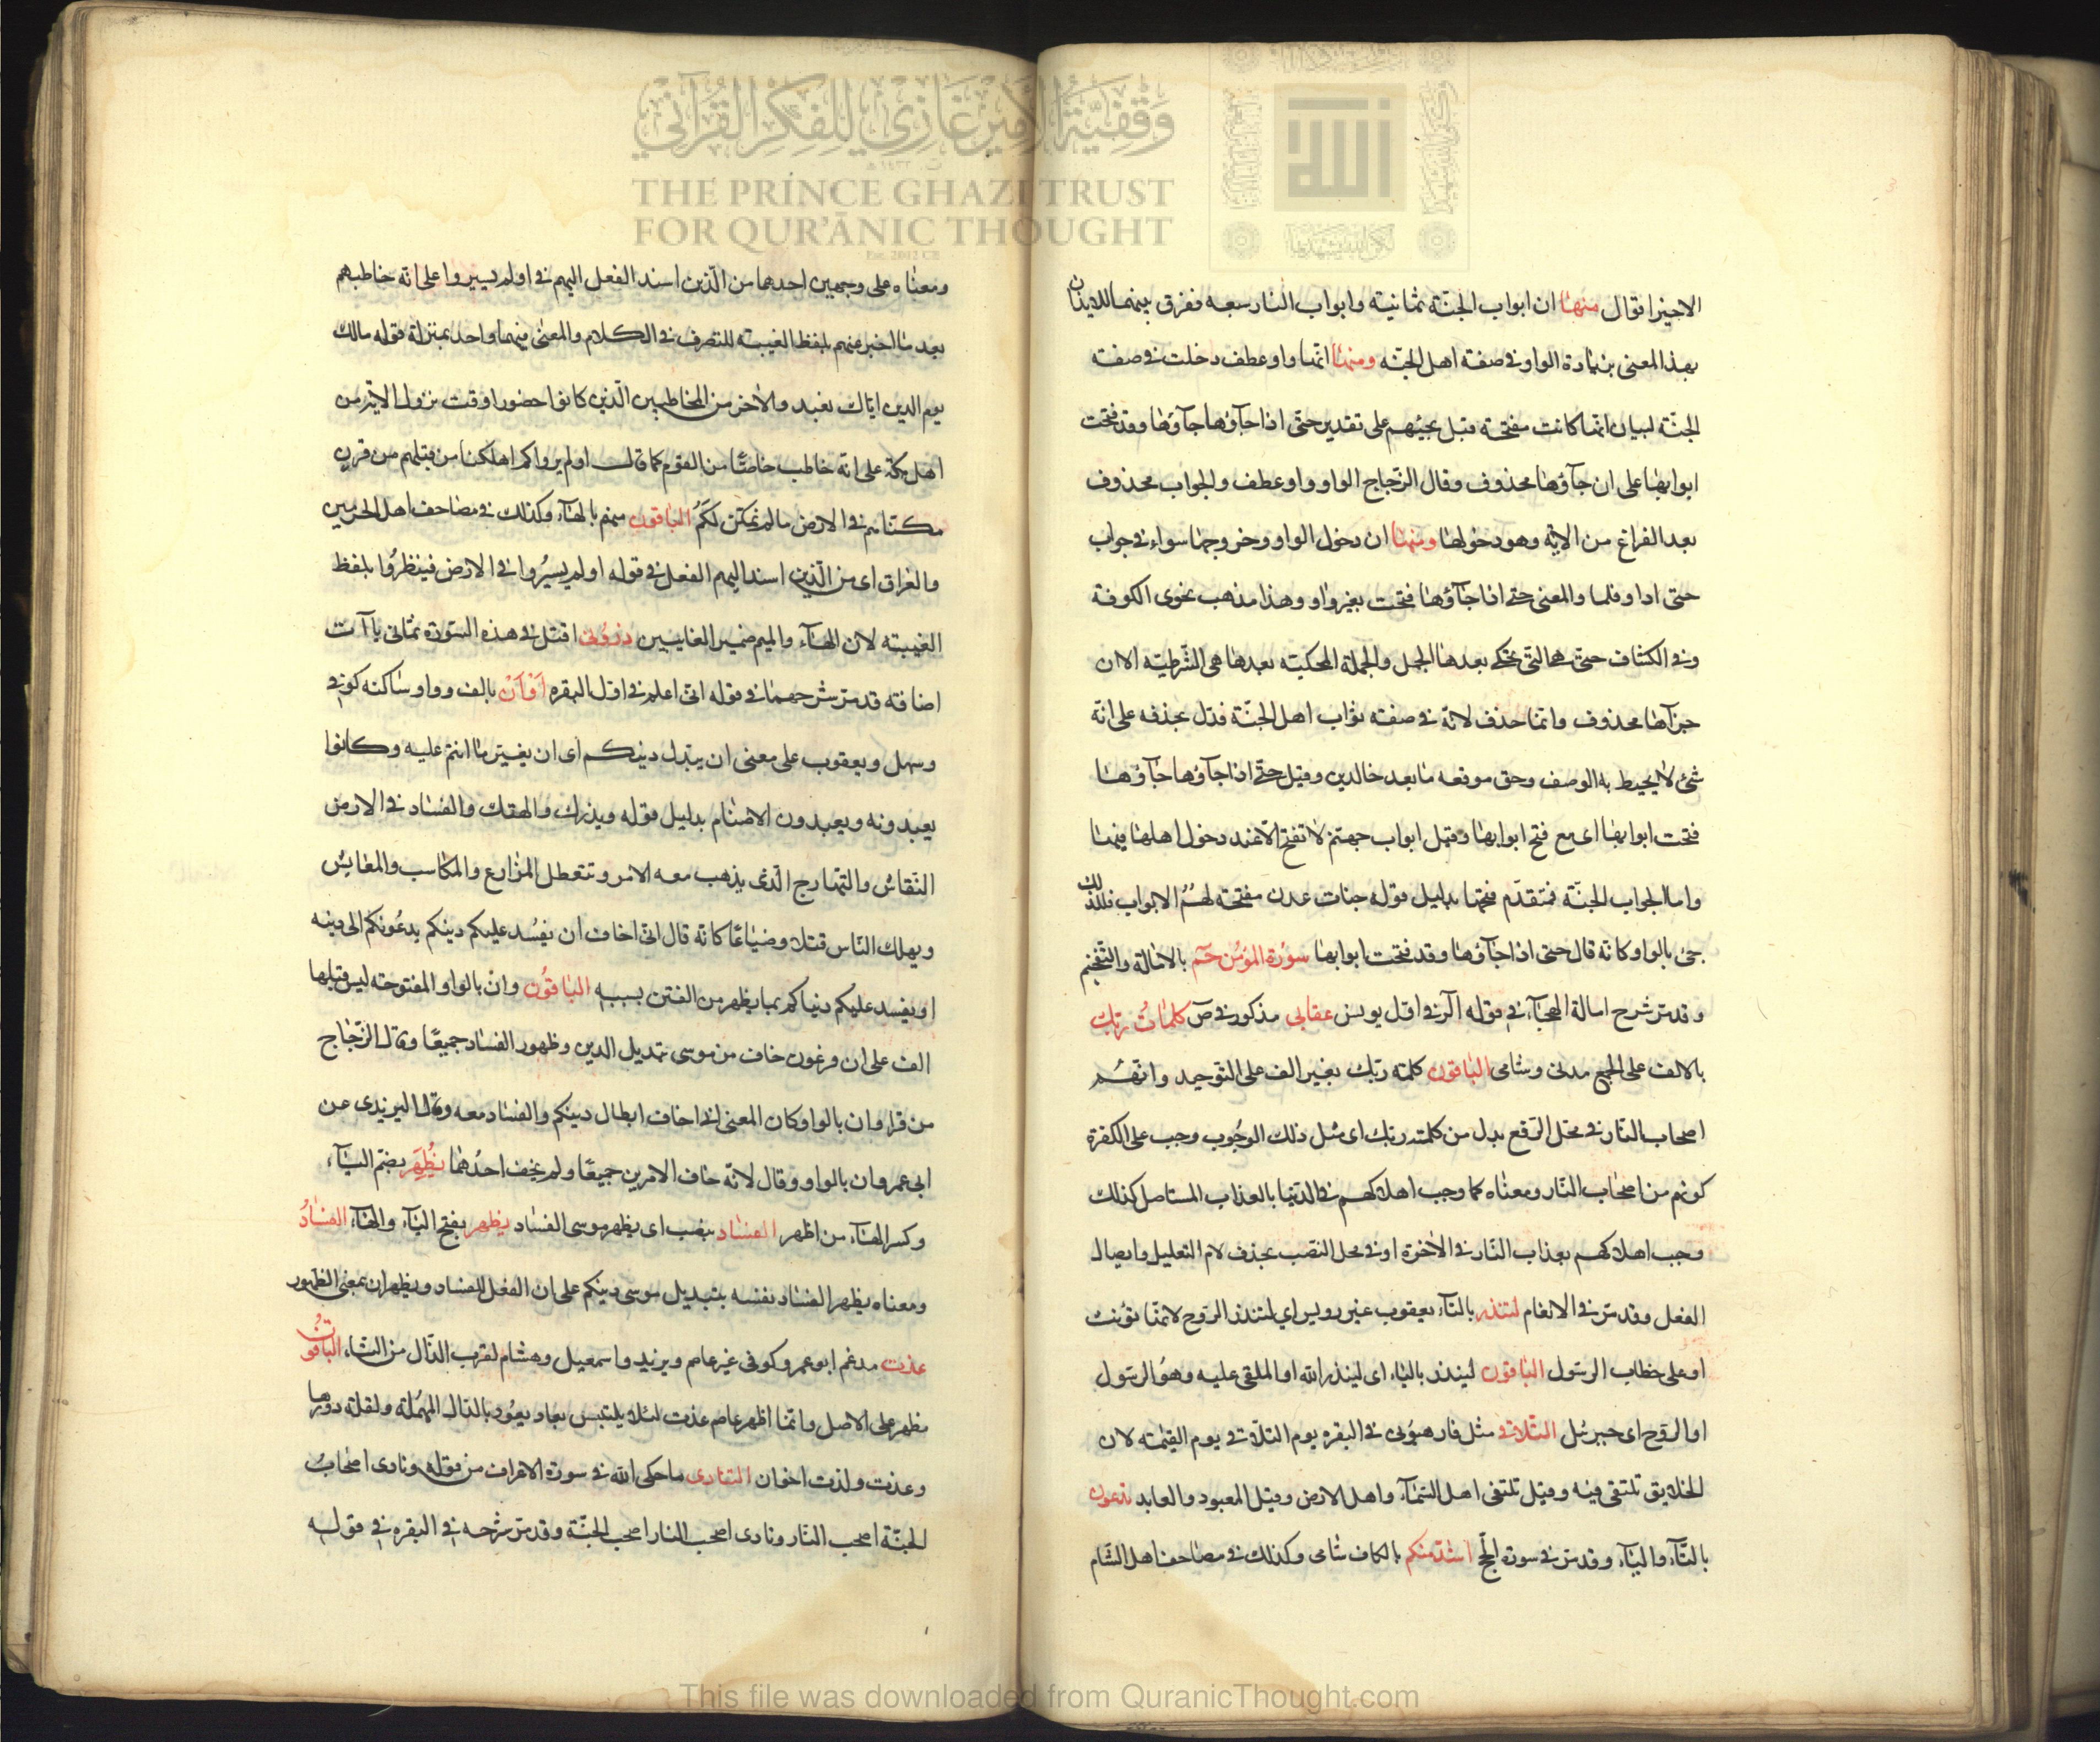 وقفية الأمير غازي للفكر القرآني
THE PRINCE GHAZI TRUST
FOR QUR'ĀNIC THOUGHT
الاخير اقوال منها ان ابواب الجنّة ثمانية وابواب النار سبعه ففرق بينهما للايذان
بهذا المعنى بزيادة الواو في صفة اهل الجنّه ومنها انّها واو عطف دخلت في صفته
الجنّة لبيان انّها كانت مفتحة قبل مجيئهم على تقدير حتّى اذا جآؤها جآؤها وقد فتحت
ابوابها على ان جآؤها محذوف وقال الزّجاج الواو واو عطف والجواب محذوف
بعد الفراغ من الاية وهو دخولها ومنها ان دخول الواو وخروجها سواء في جواب
حتى اذا وفلما والمعنى حتى اذا جآؤها فتحت بغير واو وهذا مذهب نحوى الكوفة
وفي الكشاف حتى هي التي تحكى بعدها الجمل والجملة المحكية بعدها هي الشرطيّة الا ان
جزآها محذوف وانما حذف لانه في صفته ثواب اهل الجنّة فدل بحذفه على انّه
شئ لا يحيط به الوصف وحق موقعه ما بعد خالدين وقيل حتى اذا جآؤها جآؤها
فتحت ابوابها اى مع فتح ابوابها وقيل ابواب جهنم لا تفتح الا عند دخول اهلها فيها
واما ابواب الجنّة فمتقدّم فتحها بدليل قوله جنات عدن مفتحة لهم الابواب فلذلك
جئ بالواو كانه قال حتى اذا جآؤها وقد فتحت ابوابها سورة المؤمن حم بالامالة والتفخيم
وقد مر شرح امالة الهجآء في قوله الر في اول يونس عقابى مذكور في ص كلمات ربك
بالالف على الجمع مدنى وشامى الباقون كلمة ربك بغير الف على التوحيد وانهم
اصحاب النار في محل الرّفع بدل من كلمت ربك اى مثل ذلك الوجوب وجب على الكفرة
كونهم من اصحاب النّار ومعناه كما وجب اهلاكهم في الدنيا بالعذاب المستاصل كذلك
وجب اهلاكهم بعذاب النّار في الاخرة او في محل النصب بحذف لام التعليل وايصال
الفعل وقد مر في الانعام لتنذر بالتآء يعقوب غير رويس اي لتنذر الروح لانها تؤنث
او على خطاب الرسول الباقون لينذر باليآء اى لينذر الله او الملقى عليه وهو الرسول
او الروح اى جبرئيل التلاق مثل فارهبونى في البقره يوم التلاق يوم القيمة لان
الخلايق تلتقى فيه وقيل تلتقى اهل السمآء واهل الارض وقيل المعبود والعابد تدعون
بالتآء واليآء وقد مر في سورة الحج اشد منكم بالكاف شامى وكذلك في مصاحف اهل الشام
ومعناه على وجهين احدهما من الّذين اسند الفعل اليهم في اولم يسيروا على انه خاطبهم
بعد ما اخبر عنهم بلفظ الغيبة للتصرف في الكلام والمعنى فيهما واحد بمنزلة قوله مالك
يوم الدين اياك نعبد والاخر من المخاطبين الّذين كانوا حضورا وقت نزول الاية من
اهل مكة على انه خاطب خاصّا من القوم كما قال اولم يروا كم اهلكنا من قبلهم من قرن
مكنّاهم في الارض ما لم نمكن لكم الباقون منهم بالهآء وكذلك في مصاحف اهل الحرمين
والعراق اى من الّذين اسند اليهم الفعل في قوله اولم يسيروا في الارض فينظروا بلفظ
الغيبة لان الهآء والميم ضمير الغايبين ذرونى اقتل في هذه السّورة ثمانى ياآت
اضافة قد مر شرحها في قوله انى اعلم في اول البقره او ان بالف وواو ساكنه كوفي
وسهل ويعقوب على معنى ان يبدل دينكم اى ان يغير ما انتم عليه وكانوا
يعبدونه ويعبدون الاصنام بدليل قوله ويذرك والهتك والفساد في الارض
التقاتل والتهارج الّذى يذهب معه الامن وتتعطل المزارع والمكاسب والمعايش
ويهلك النّاس قتلا وضياعا كانه قال انى اخاف ان يفسد عليكم دينكم بدعوتكم الى دينه
او يفسد عليكم دنياكم بما يظهر من الفتن بسببه الباقون وان بالواو المفتوحة ليس قبلها
الف على ان فرعون خاف من موسى تبديل الدين وظهور الفساد جميعا وقال الزّجاج
من قرا وان بالواو كان المعنى انى اخاف ابطال دينكم والفساد معه وقال اليزيدى عن
ابى عمرو ان بالواو وقال لانه خاف الامرين جميعًا ولم يخف احدهما يُظهِر بضم اليآء
وكسر الهآء من اظهر الفساد بنصب اى يظهر موسى الفساد يظهر بفتح اليآء والهآء الفسادُ
ومعناه يظهر الفساد نفسه بتبديل موسى دينكم على ان الفعل للفساد ويظهر ان بمعنى الظهور
عذت مدغم ابو عمرو كوفى غير عاصم ويزيد واسمعيل وهشام لقرب الذّال من التاء الباقون
مظهر على الاصل وانّما اظهر عاصم عذت لئلا يلتبس بعاد يعود بالدال المهملة ولقلة دورها
وعذت ولذت اخوان التنادى ما حكى الله في سورة الاعراف من قوله ونادى اصحاب
الجنّة اصحب النّار ونادى اصحب النار اصحب الجنّة وقد مر شرحه في البقره في قوله
This file was downloaded from QuranicThought.com